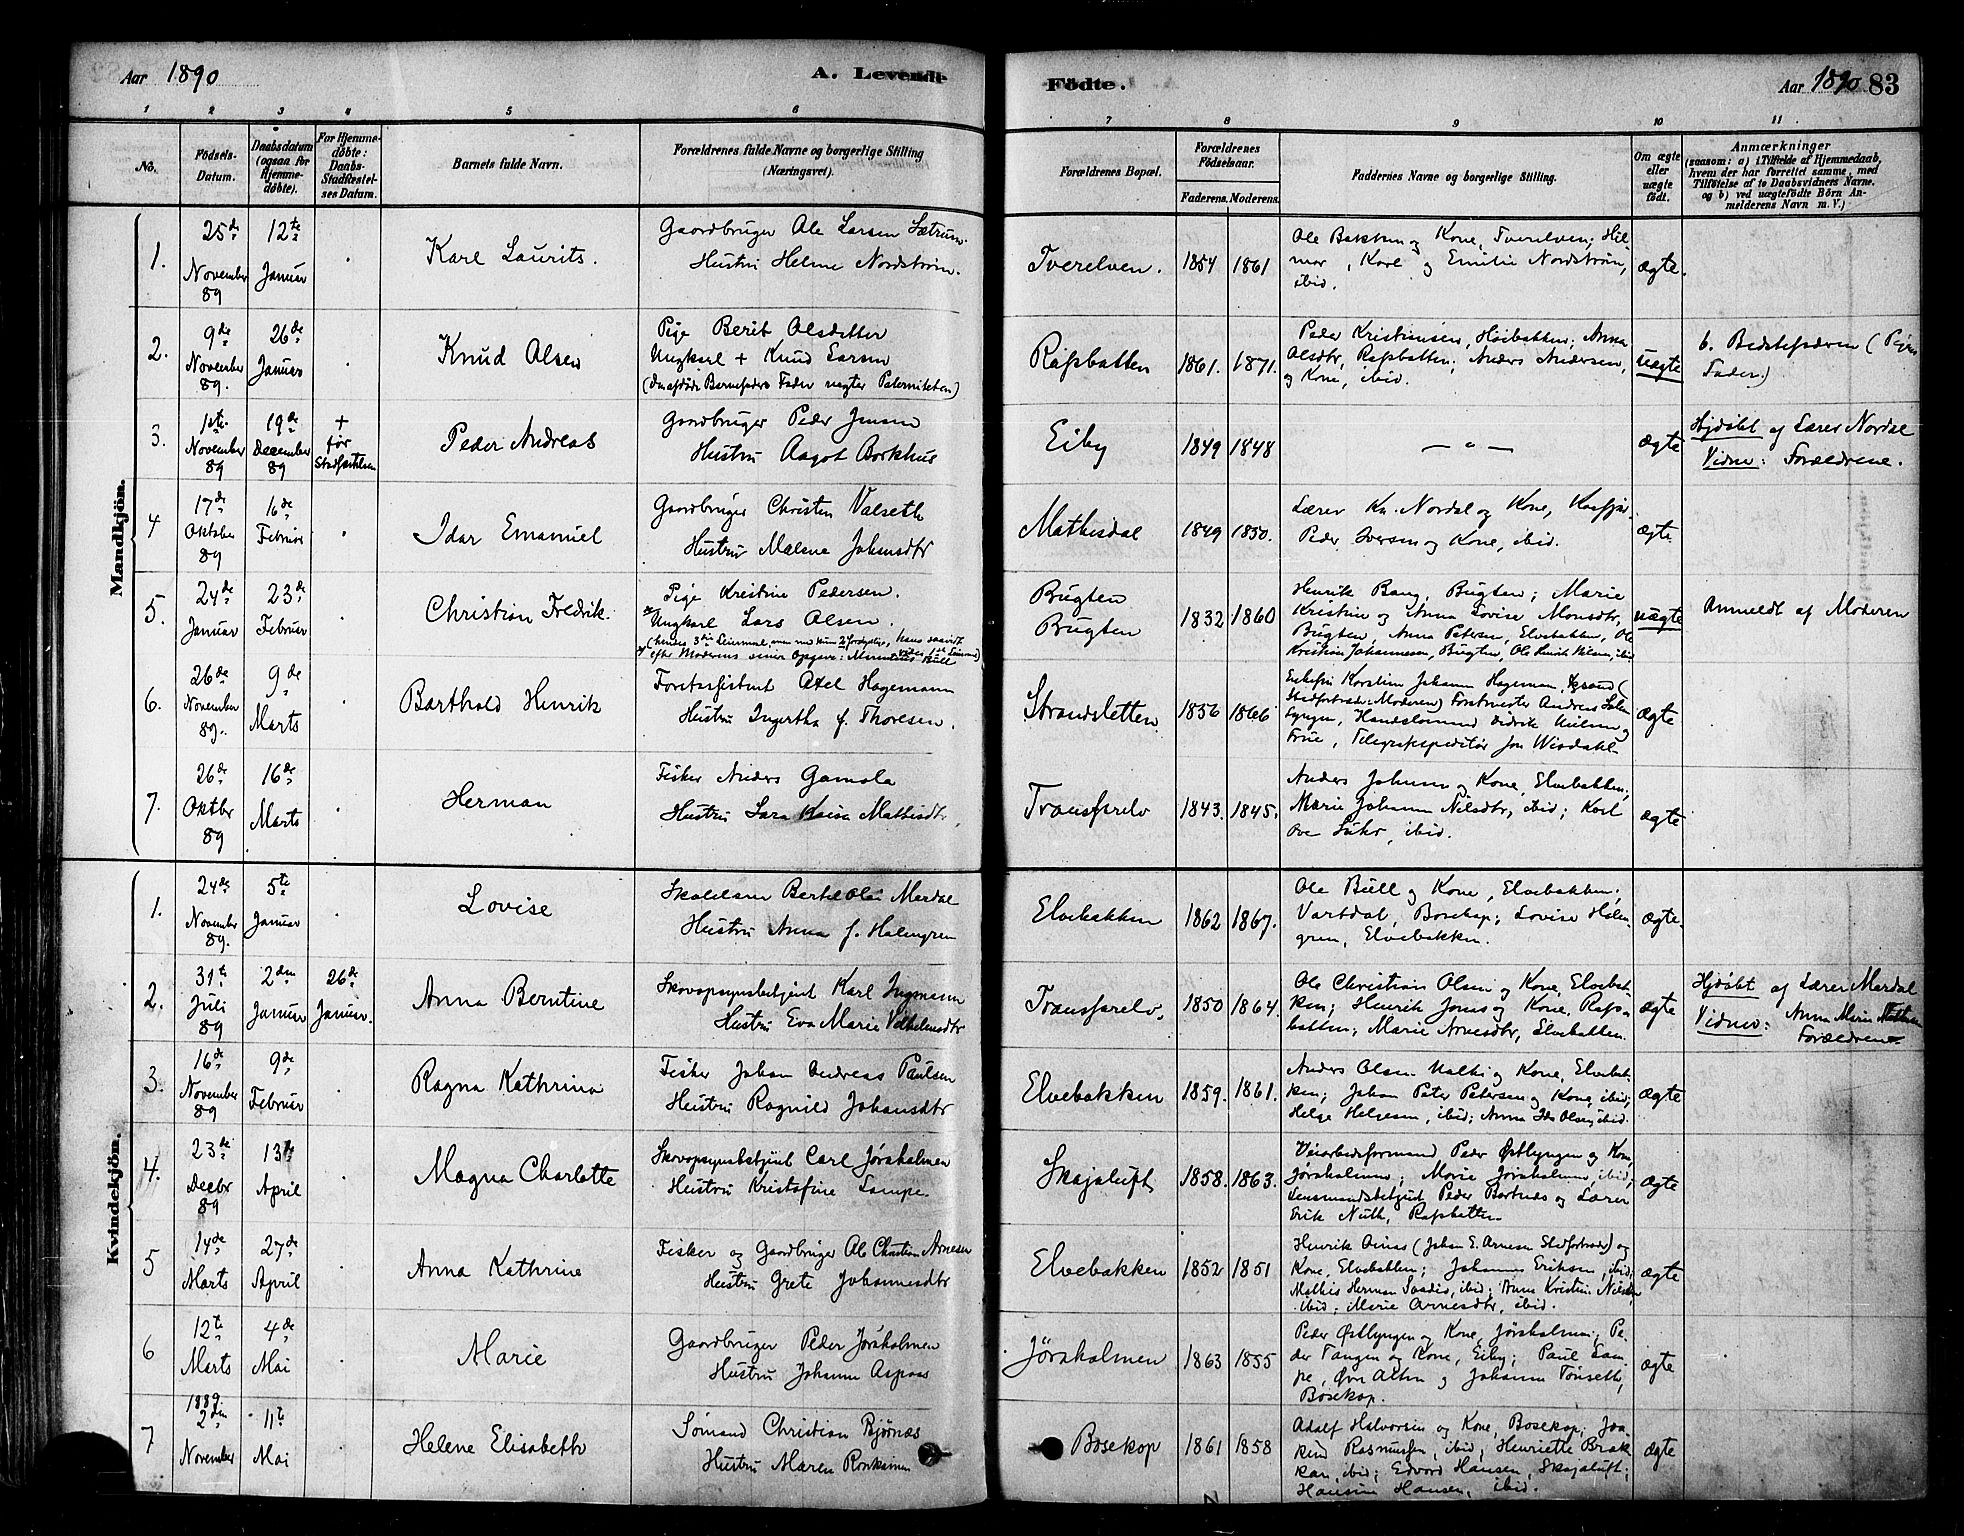 Aar 1890
A. Levende
Födte.
Aar 1890 83
1 2 3 4 5 6 7 8 9 10 11
No.
Födsels-
Datum.
Daabsdatum
(ogsaa for
Hjemme-
döbte).
For Hjemme-
döbte:
Daabs-
Stadfæstel-
ses Datum.
Barnets fulde Navn.
Forældrenes fulde Navne og borgerlige Stilling
(Næringsvei).
Forældrenes Bopæl.
Forældrenes
Födselsaar.
Faderens. Moderens.
Faddernes Navne og borgerlige Stilling.
Om ægte
eller
uægte
födt.
Anmærkninger
(saasom: a) i Tilfælde af Hjemmedaab,
hvem der har forrettet samme, med
Tilföielse af to Daabsvidners Navne.
og b) ved uægtefödte Börn An-
melderens Navn m. V.)
Mandkjön.
1.
25de
November
89
12te
Januar
Karl Laurits.
Gaardbruger Ole Larsen Sætrum.
Hustru Helene Nordstrøm.
Tverelven.
1854 1861
Ole Bakken og Kone, Tverelven; Hil-
mar, Karl og Emilie Nordstrøm,
ibid.
ægte.
2.
9de
November
89.
26de
Januar
Knud Olsen
Pige Berit Olsdatter
Ungkarl + Knud Larsen
(Den afdøde Barnefaders Fader nægter Paterniteten)
Rafsbatten
1861. 1871.
Peder Kristensen, Høibakken; Anna
Olsdtr, Rafsbatten; Anders Andersen,
og Kone, ibid.
uægte
b. Bedstefaderen (Pigens
Fader.)
3.
1ste
November
89
19de
December
89
+
før
Stadfæstelsen
Peder Andreas
Gaardbruger Peder Jensen
Hustru Aagot Borkhus
Eiby
1849 1848
— " —
ægte
Hjdøbt af Lærer Nordal
Vidner: Forældrene.
4
17de
Oktober
89
16de
Februar
Idar Emanuel
Gaardbruger Christen Valseth
Hustru Malene Johansdtr
Mathisdal
1849 1850.
Lærer Kn. Nordal og Kone, Kaafjor.
Peder Iversen og Kone, ibid.
ægte.
5.
24de
Januar
23de
Februar
Christian Fredrik.
Pige Kristine Pedersen.
Ungkarl Lars Olsen.
Bugten
Bugten
1832 1860
Henrik Bang, Bugten; Marie
Kristine og Anna Lovise Monsdtr,
Bugten, Anna Petersen, Elvebakken, Ole
Kristian Johannessen, Bugten, Ole Henrik Nilsen, ibid
uægte
Anmeldt af Moderen
6.
26de
November
89.
9de
Marts
Barthold Henrik
Forstassistent Axel Hagemann
Hustru Ingertha f. Thoresen.
Strandsletten
1856 1866
Enkefru Karstine Johanne Hageman,
Stadfortræder: Moderen) Forstmester Andreas
Lyngen, Handelsmand Didrik Nielsen og
Frue, Telegrafexpeditør Jon Wisdahl
ægte
7.
26de
Oktbr
89
16de
Marts
Herman
Fisker Anders Gamola
Hustru Sara Kaisa Mathisdtr,
Transfarelv
1843. 1845.
Anders Johnsen og Kone, Elvebakken;
Marie Johanne Nilsdtr, ibid; Karl
Ove Suhr, ibid.
ægte
Kvindekjön.
1.
24de
November
89.
5te
Januar
Lovise
Skolelæn Berthe Olai Mardal
Hustru Anna f. Holmgren
Elvebakken
1862 1867.
Ole Bull og Kone, Elvebakken;
Vartdal, Bosekop; Lovise Holm-
gren, Elvebakken.
ægte.
2.
31te
Juli
89
2den
Januar
26de
Januar.
Anna Berntine
Skovopsynsbetjent Karl Ingemann
Hustru Eva Marie Vilhelmsdtr
Transfarelv,
1850 1864.
Ole Christian Olsen og Kone, Elvebak-
ken; Henrik Jonas og Kone, Rafs-
batten; Marie Arnesdtr, Elvebakken.
ægte
Hjdøbt af Lærer Mardal
Vidner: Anna Marie
Forældrene.
3.
16de
November
89
9de
Februar
Ragna Kathrina
Fisker Johan Andreas Paulsen
Hustru Ragnild Johansdtr
Elvebakken
1859. 1861.
Anders Olsen Nalki og Kone, Elvebak-
ken; Johan Peter Petersen og Kone, ibid;
Helge Helgesen, ibid; Anna Ida Olsen, ibid.
ægte
4.
23de
Decbr
89
13de
April
Magna Charlotte
Skovopsynsbetjent Carl Jørsholmen
Hustru Kristofine Lampe
Skajaluft
1858. 1863.
Veiarbeidsformand Peder Østlyngen og Kone
Jørsholmen; Marie Jørsholmen, ibid;
Lensmandsbetjent Peder Bartnæs og Lærer
Erik Nuth, Rafsbatten
ægte
5
14de
Marts
27de
April
Anna Kathrine
Fisker og Gaardbruger Ole Christian Arnesen
Hustru Grete Johannesdtr
Elvebakken
1852 1851
Henrik Ainas (Johan E. Arnesen Stedfortræder) og
Kone, Elvebakken; Johannes Eriksen, ibid;
Mathis Herman Saadis, ibid; Anna Kristine Nilsen,
ibid; Marie Arnesdtr, ibid.
ægte
6
12te
Marts
4de
Mai
Marie
Gaardbruger Peder Jørsholmen
Hustru Johanne Aspaas
Jørsholmen
1863 1855
Peder Østlyngen og Kone, Jørsholmen; Pe-
der Tangen og Kone, Eiby; Paul Lam-
pe, Øvre Alten og Johanna Tønseth,
Bosekop.
ægte
7
1889
2den
November
11te
Mai
Helene Elisabeth
Sømand Christian Bjørnæs
Hustru Maren
Bosekop
1861 1858
Adolf Halvorsen og Kone, Bosekop; Joa-
kim Rasmussen, ibid; Henriette Brak-
kan, ibid; Edvard Hansen, Skajaluft;
Hansine Hansen, ibid.
ægte